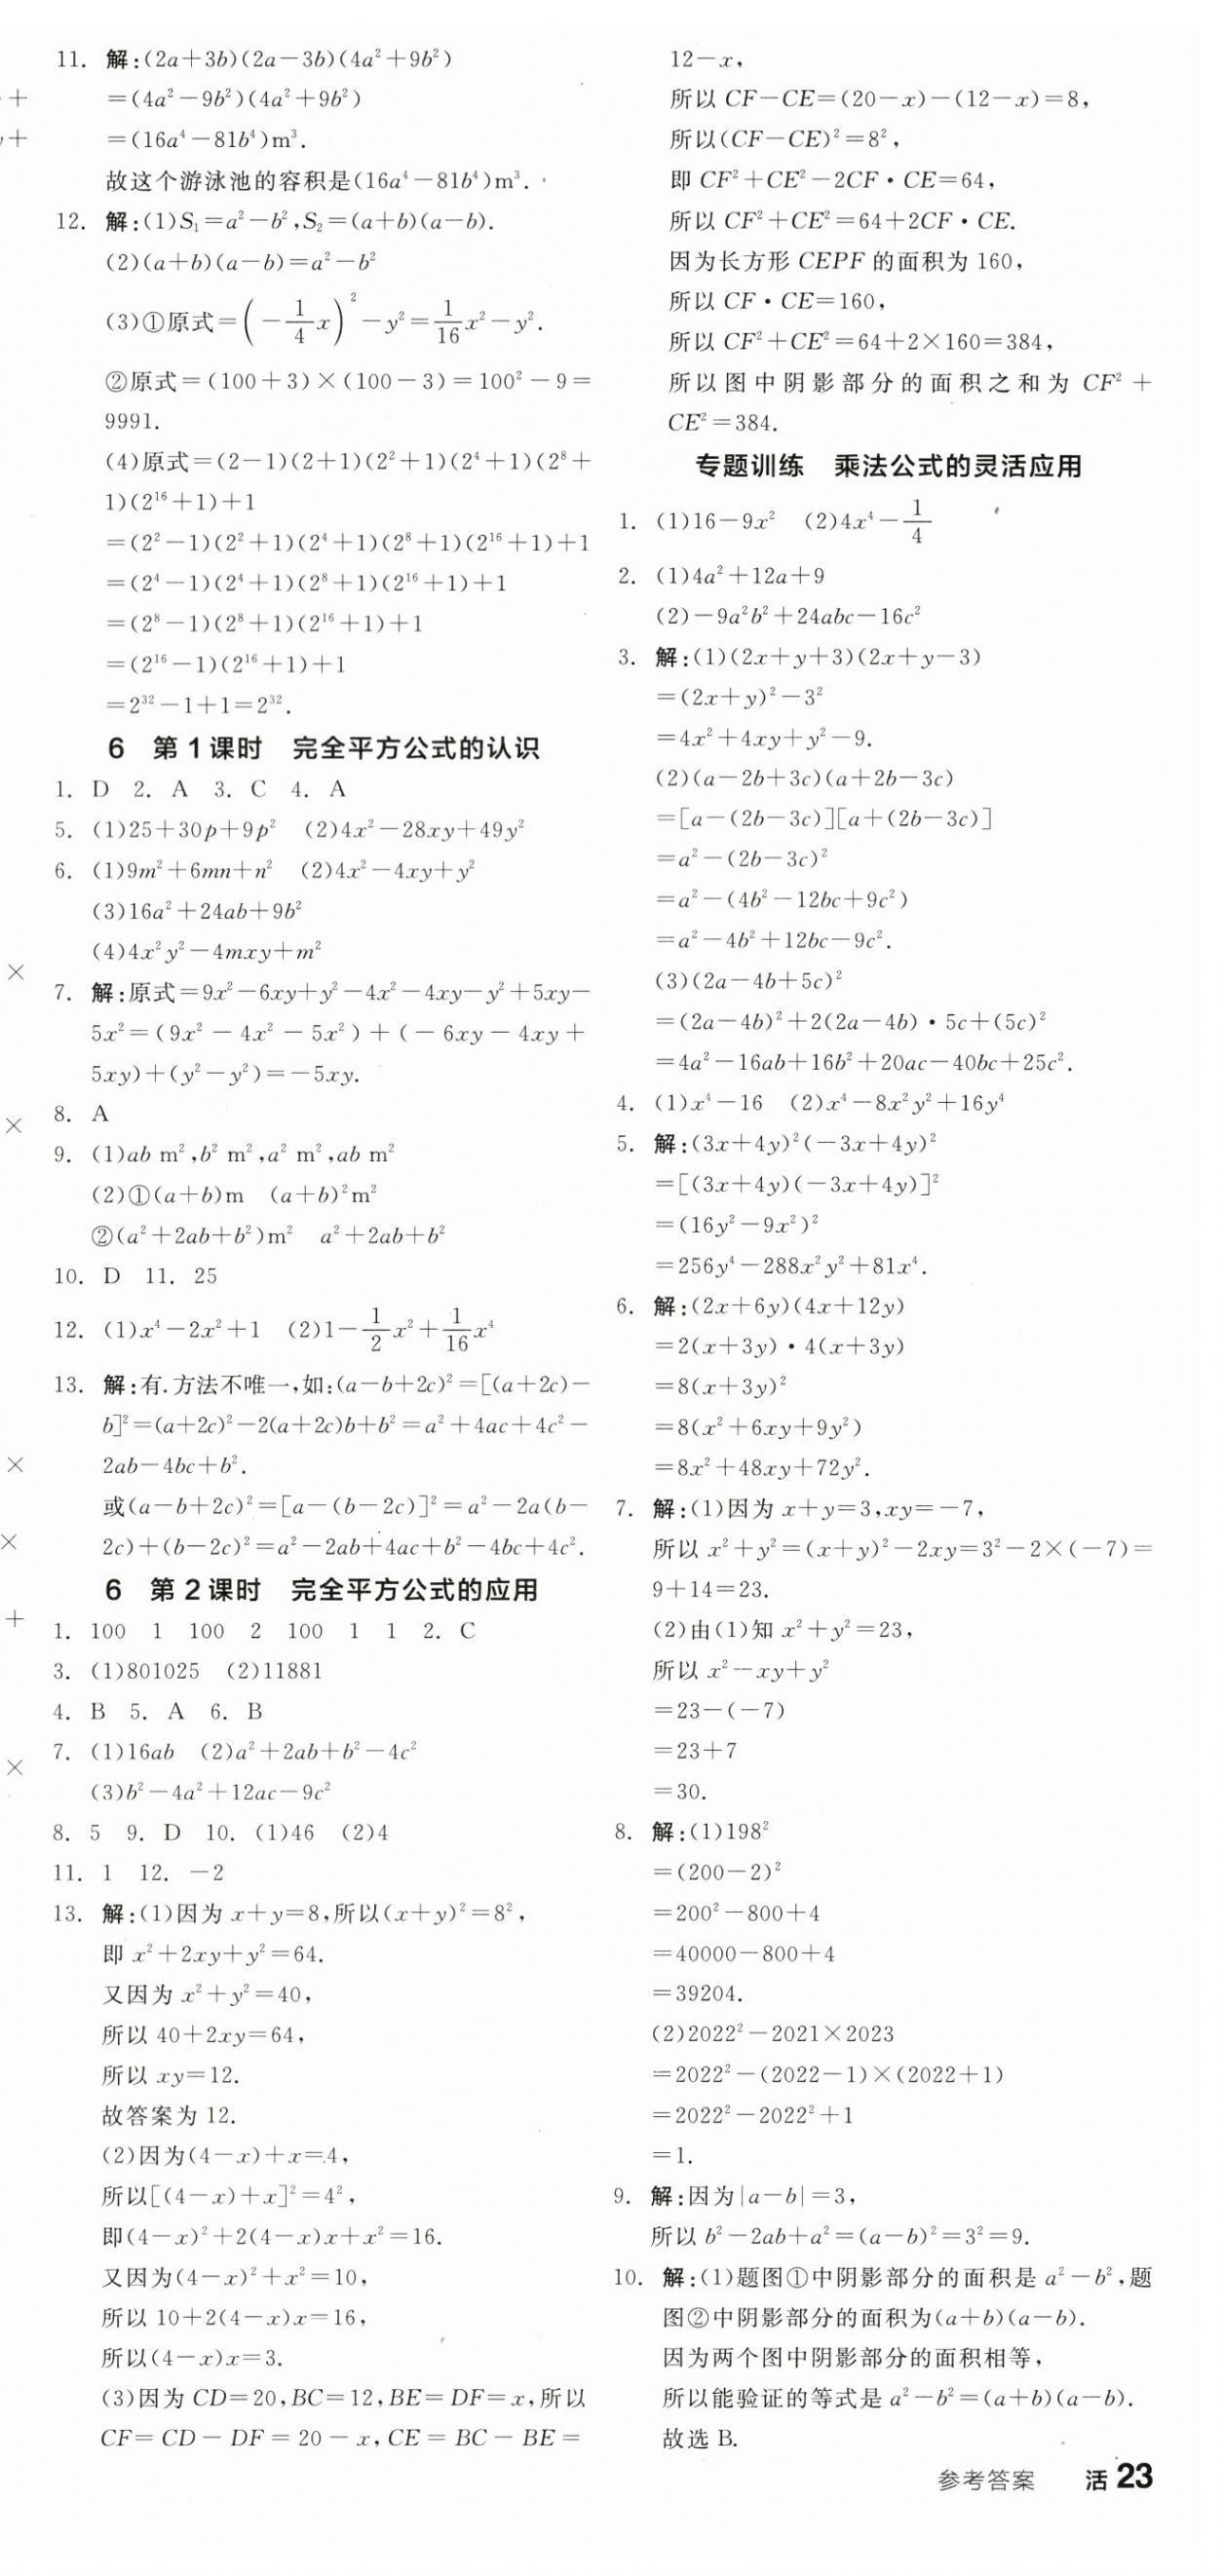 11. 解:(2a+3b)(2a-3b)(4a²+9b²)
=(4a²-9b²)(4a²+9b²)
=(16a⁴-81b⁴)m³.
故这个游泳池的容积是(16a⁴-81b⁴)m³.
12. 解:(1)S₁=a²-b²,S₂=(a+b)(a-b).
(2)(a+b)(a-b)=a²-b²
(3)①原式=(-1/4x)²-y²=1/16x²-y².
②原式=(100+3)×(100-3)=100²-9=
9991.
(4)原式=(2-1)(2+1)(2²+1)(2⁴+1)(2⁸+
1)(2¹⁶+1)+1
=(2²-1)(2²+1)(2⁴+1)(2⁸+1)(2¹⁶+1)+1
=(2⁴-1)(2⁴+1)(2⁸+1)(2¹⁶+1)+1
=(2⁸-1)(2⁸+1)(2¹⁶+1)+1
=(2¹⁶-1)(2¹⁶+1)+1
=2³²-1+1=2³².
6 第1课时 完全平方公式的认识
1. D 2. A 3. C 4. A
5. (1)25+30p+9p² (2)4x²-28xy+49y²
6. (1)9m²+6mn+n² (2)4x²-4xy+y²
(3)16a²+24ab+9b²
(4)4x²y²-4mxy+m²
7. 解:原式=9x²-6xy+y²-4x²-4xy-y²+5xy-
5x²=(9x²-4x²-5x²)+(-6xy-4xy+
5xy)+(y²-y²)=-5xy.
8. A
9. (1)ab m²,b² m²,a² m²,ab m²
(2)①(a+b)m (a+b)²m²
②(a²+2ab+b²)m² a²+2ab+b²
10. D 11. 25
12. (1)x⁴-2x²+1 (2)1-1/2x²+1/16x⁴
13. 解:有.方法不唯一,如:(a-b+2c)²=[(a+2c)-
b]²=(a+2c)²-2(a+2c)b+b²=a²+4ac+4c²-
2ab-4bc+b².
或(a-b+2c)²=[a-(b-2c)]²=a²-2a(b-
2c)+(b-2c)²=a²-2ab+4ac+b²-4bc+4c².
6 第2课时 完全平方公式的应用
1. 100 1 100 2 100 1 1 2. C
3. (1)801025 (2)11881
4. B 5. A 6. B
7. (1)16ab (2)a²+2ab+b²-4c²
(3)b²-4a²+12ac-9c²
8. 5 9. D 10. (1)46 (2)4
11. 1 12. -2
13. 解:(1)因为x+y=8,所以(x+y)²=8²,
即x²+2xy+y²=64.
又因为x²+y²=40,
所以40+2xy=64,
所以xy=12.
故答案为12.
(2)因为(4-x)+x=4,
所以[(4-x)+x]²=4²,
即(4-x)²+2(4-x)x+x²=16.
又因为(4-x)²+x²=10,
所以10+2(4-x)x=16,
所以(4-x)x=3.
(3)因为CD=20,BC=12,BE=DF=x,所以
CF=CD-DF=20-x,CE=BC-BE=
12-x,
所以CF-CE=(20-x)-(12-x)=8,
所以(CF-CE)²=8²,
即CF²+CE²-2CF·CE=64,
所以CF²+CE²=64+2CF·CE.
因为长方形CEPF的面积为160,
所以CF·CE=160,
所以CF²+CE²=64+2×160=384,
所以图中阴影部分的面积之和为CF²+
CE²=384.
专题训练 乘法公式的灵活应用
1. (1)16-9x² (2)4x⁴-1/4
2. (1)4a²+12a+9
(2)-9a²b²+24abc-16c²
3. 解:(1)(2x+y+3)(2x+y-3)
=(2x+y)²-3²
=4x²+4xy+y²-9.
(2)(a-2b+3c)(a+2b-3c)
=[a-(2b-3c)][a+(2b-3c)]
=a²-(2b-3c)²
=a²-(4b²-12bc+9c²)
=a²-4b²+12bc-9c².
(3)(2a-4b+5c)²
=(2a-4b)²+2(2a-4b)·5c+(5c)²
=4a²-16ab+16b²+20ac-40bc+25c².
4. (1)x⁴-16 (2)x⁴-8x²y²+16y⁴
5. 解:(3x+4y)²(-3x+4y)²
=[(3x+4y)(-3x+4y)]²
=(16y²-9x²)²
=256y⁴-288x²y²+81x⁴.
6. 解:(2x+6y)(4x+12y)
=2(x+3y)·4(x+3y)
=8(x+3y)²
=8(x²+6xy+9y²)
=8x²+48xy+72y².
7. 解:(1)因为x+y=3,xy=-7,
所以x²+y²=(x+y)²-2xy=3²-2×(-7)=
9+14=23.
(2)由(1)知x²+y²=23,
所以x²-xy+y²
=23-(-7)
=23+7
=30.
8. 解:(1)198²
=(200-2)²
=200²-800+4
=40000-800+4
=39204.
(2)2022²-2021×2023
=2022²-(2022-1)×(2022+1)
=2022²-2022²+1
=1.
9. 解:因为|a-b|=3,
所以b²-2ab+a²=(a-b)²=3²=9.
10. 解:(1)题图①中阴影部分的面积是a²-b²,题
图②中阴影部分的面积为(a+b)(a-b).
因为两个图中阴影部分的面积相等,
所以能验证的等式是a²-b²=(a+b)(a-b).
故选B.
参考答案 活23